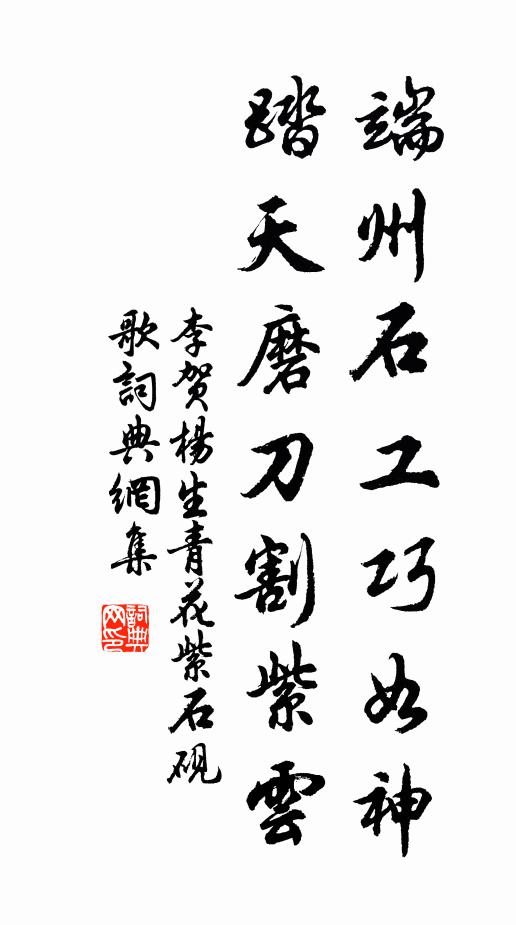 端州石工巧如神
踏天磨刀割紫雲
李贺楊生青花紫石硯
歌詞典網集
詞典網印